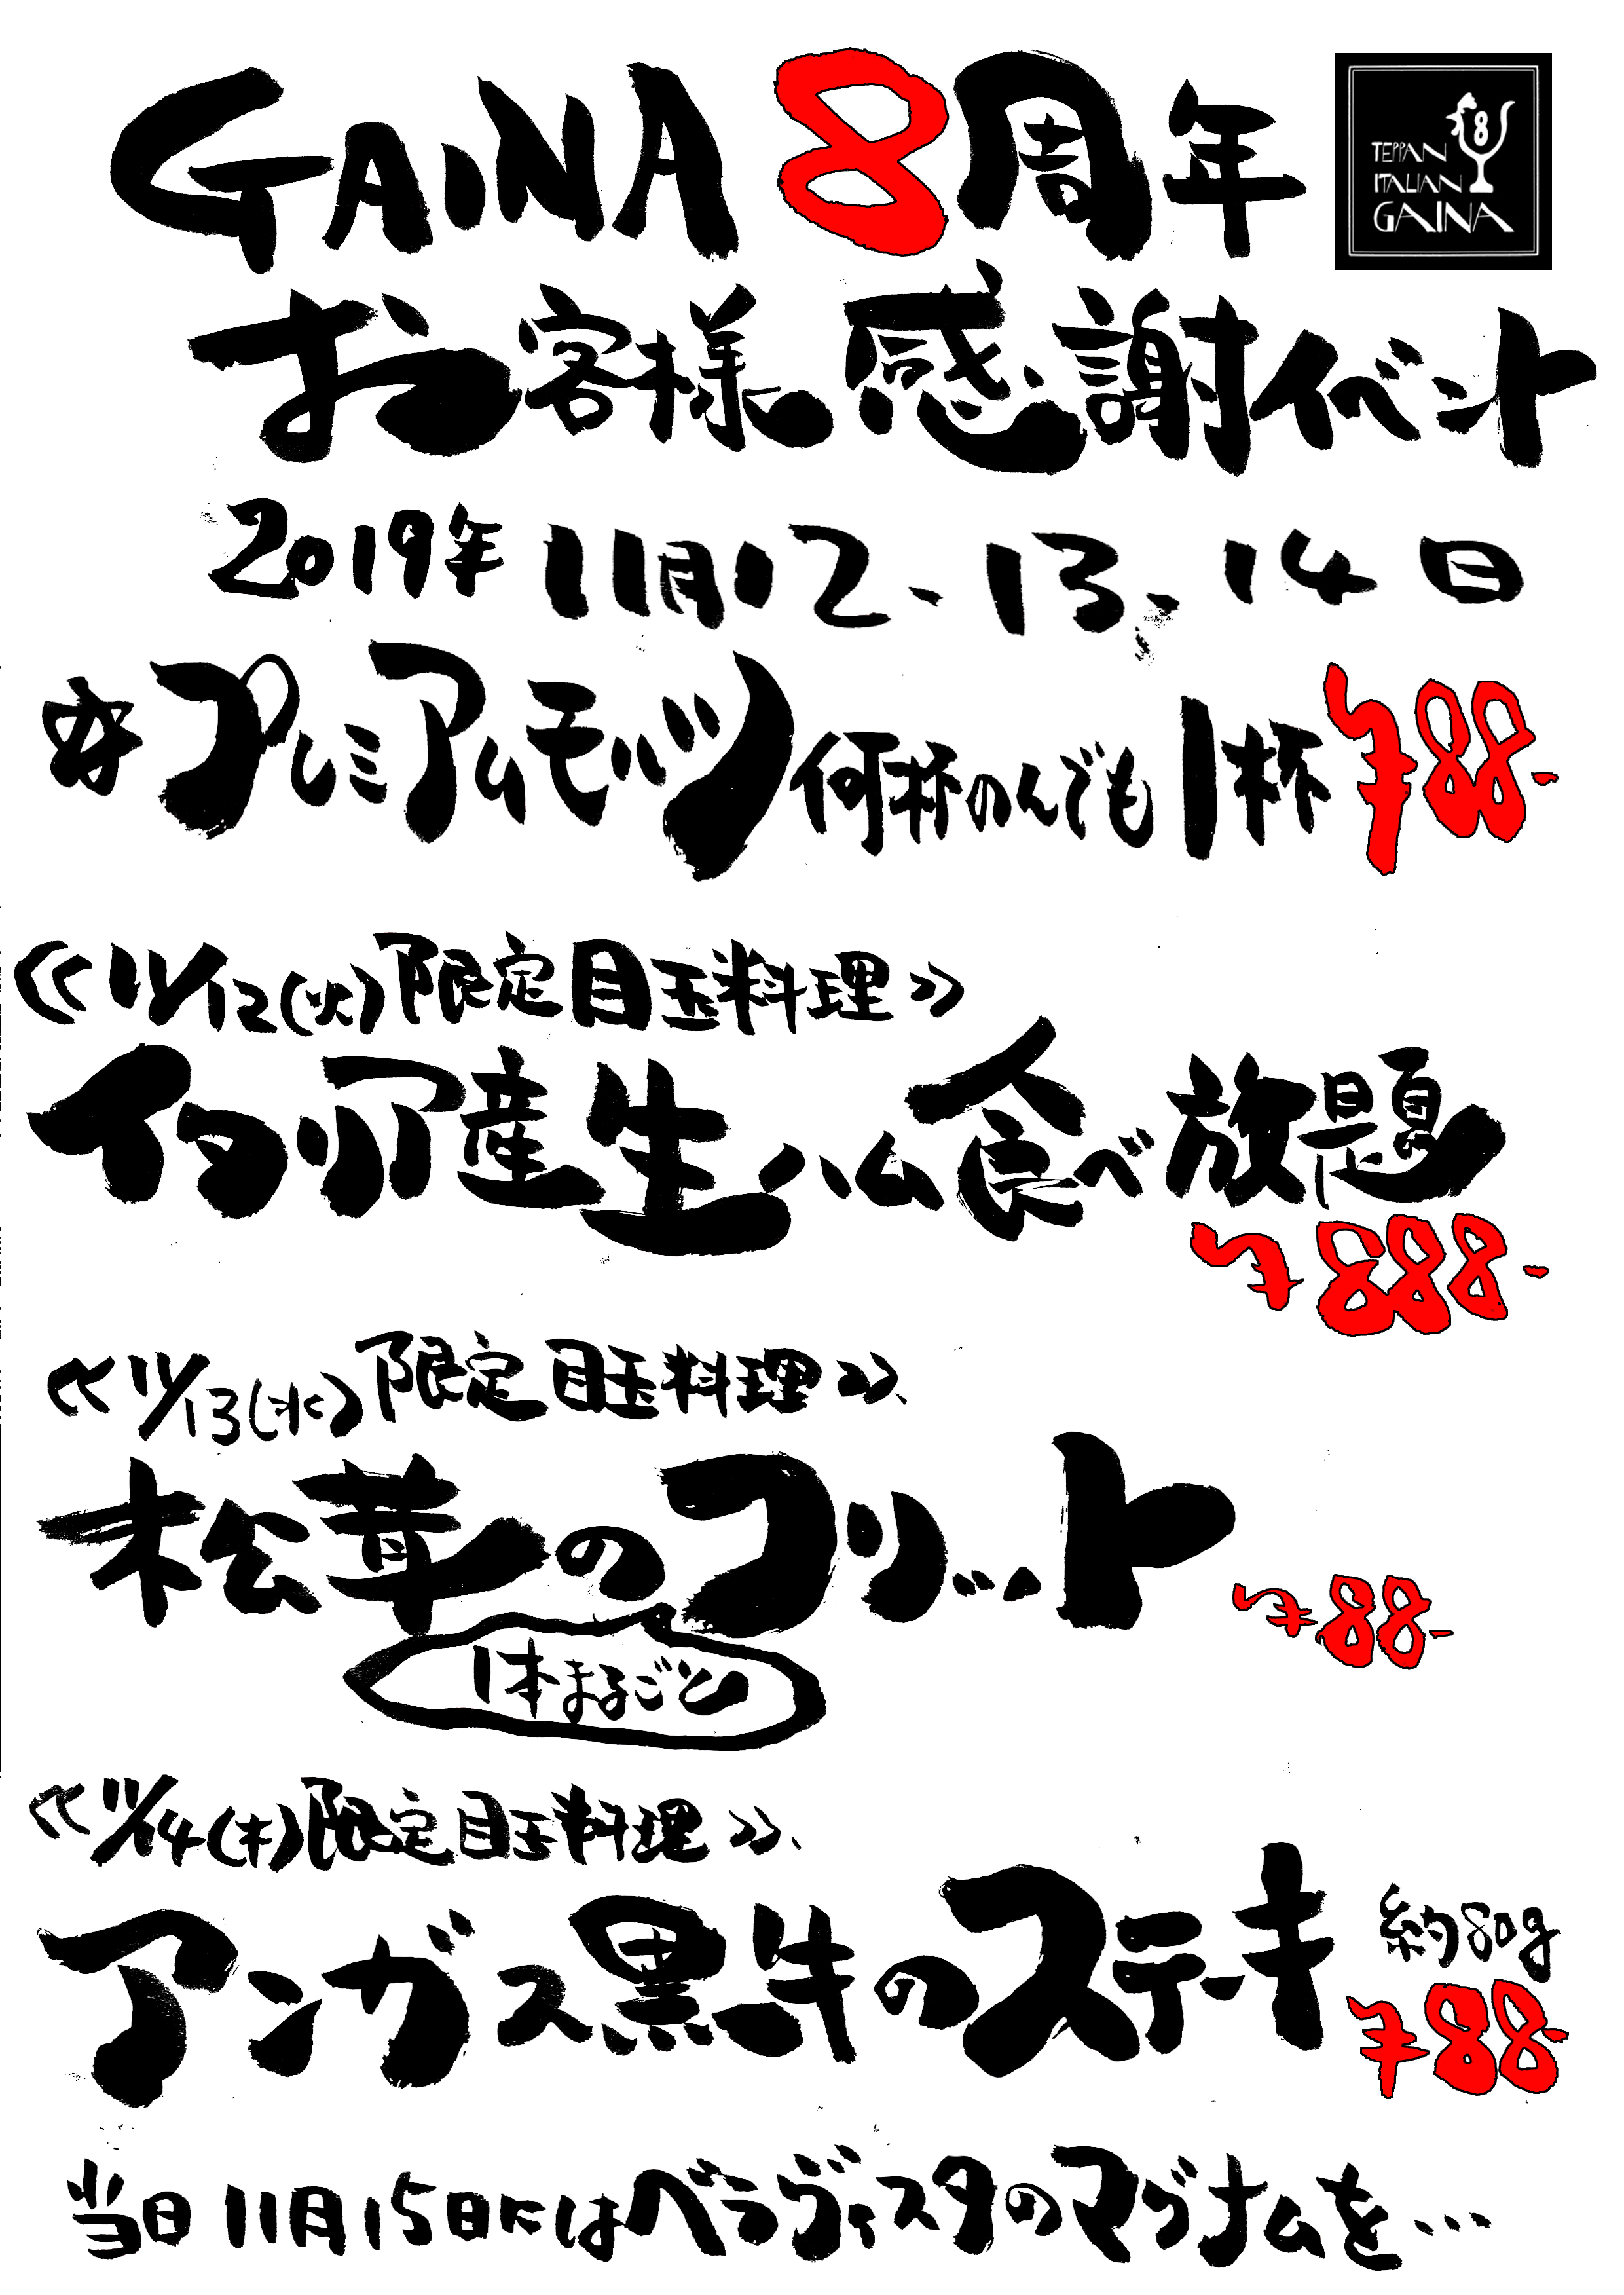 GAINA 8周年
TEPPAN
ITALIAN
GAINA
8
お客様感謝イベント
2019年11月12、13、14日
☆プレミアムモルツ何杯のんでも1杯¥88-
≪11/12(火)限定目玉料理≫
イタリア産生ハム食べ放題
¥888-
≪11/13(水)限定目玉料理≫
松茸のフリット
¥88-
1本まるごと
≪11/14(木)限定目玉料理≫
アンガス黒牛のステーキ
約80g
¥88-
当日11月15日にはベラヴィスタのマグナムを…